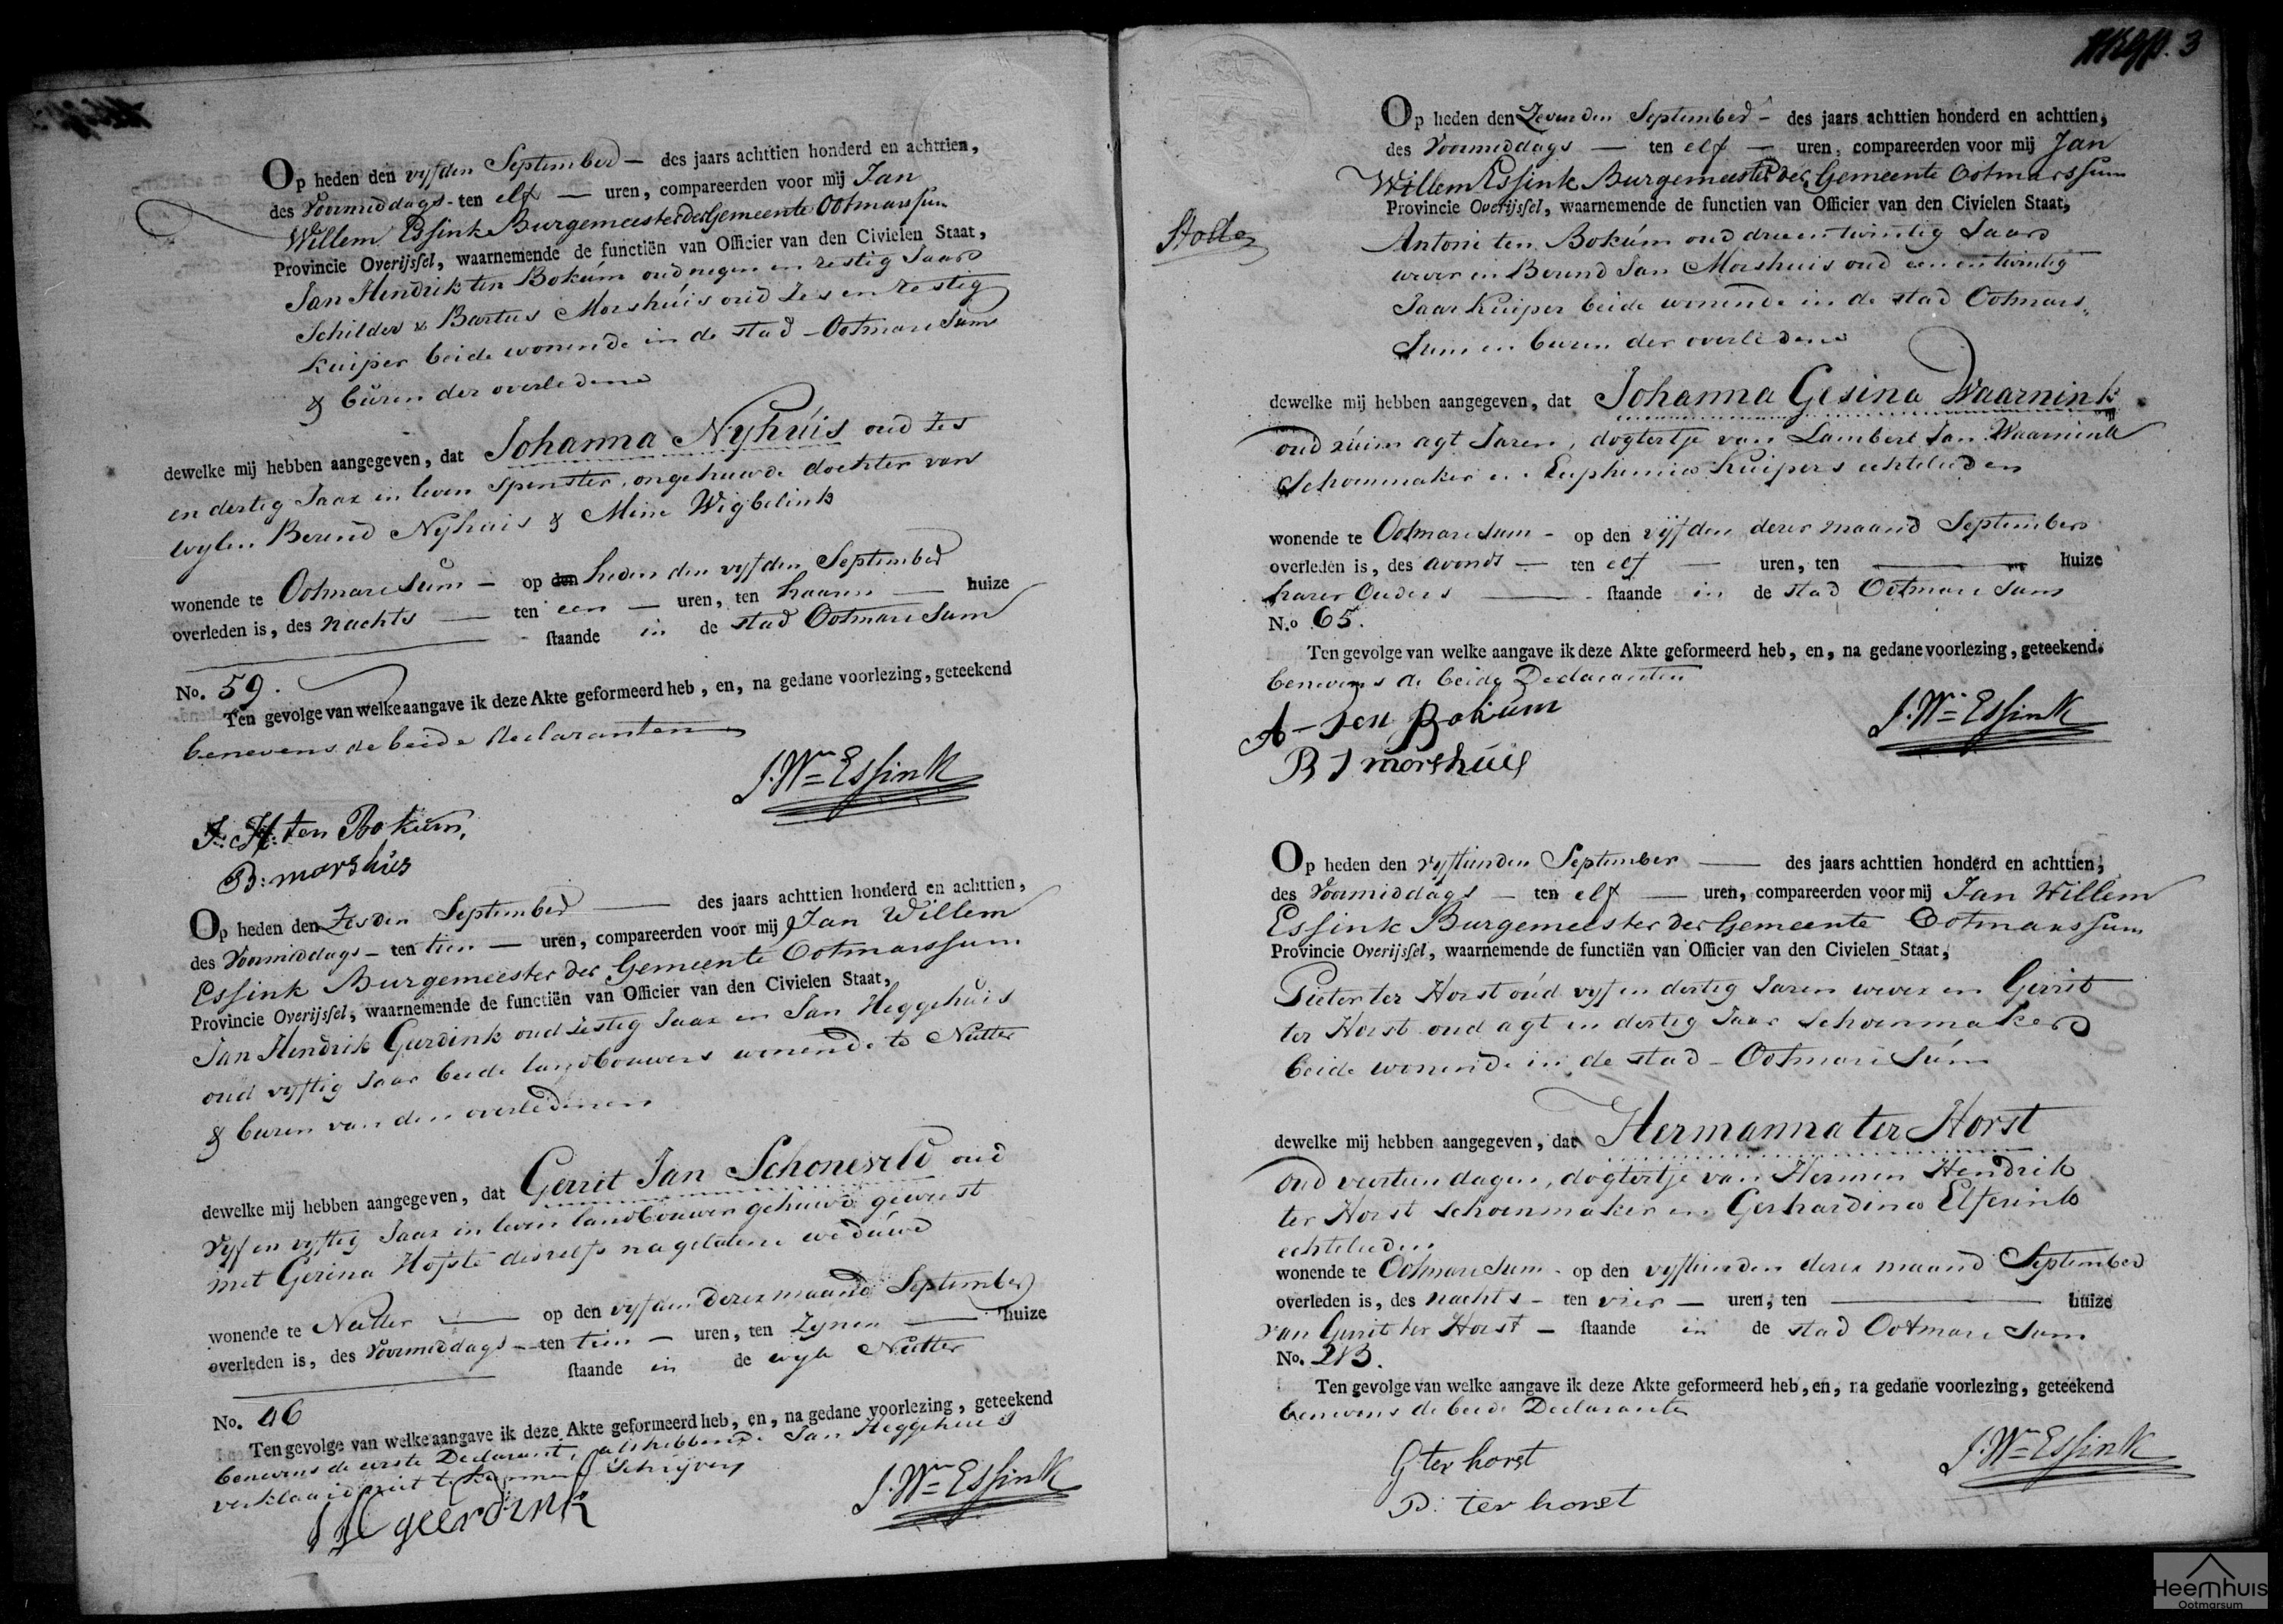 Op heden den vyfden September — des jaars achttien honderd en achttien,
des Voormiddags - ten elf — uren, compareerden voor mij Jan
Willem Essink Burgemeester der Gemeente Ootmarssum
Provincie Overijssel, waarnemende de functiën van Officier van den Civielen Staat,
Jan Hendrik ten Bokúm oud negen en zestig Jaar
Schilder & Bartus Morshúis oud Zes en zestig
Kuiper beide wonende in de stad - Ootmarssum
& búren der overledene
dewelke mij hebben aangegeven, dat Johanna Nyhúis oud Zes
en dertig Jaar in leven Spinster, ongehuwde dochter van
wylen Berend Nyhuis & Mine Wigbelink
wonende te Ootmarssum - op den heden den vyfden September
overleden is, des nachts — ten een — uren, ten haaren — huize
staande in de stad Ootmarssum
No. 59.
Ten gevolge van welke aangave ik deze Akte geformeerd heb, en, na gedane voorlezing, geteekend
benevens de beide declaranten
J. Wm= Essink
J: H: ten Bokúm,
B: morshúis
Op heden den Zesden September — des jaars achttien honderd en achttien,
des Voormiddags - ten tien — uren, compareerden voor mij Jan Willem
Essink Burgemeester der Gemeente Ootmarssum
Provincie Overijssel, waarnemende de functiën van Officier van den Civielen Staat,
Jan Hendrik Geerdink oud zestig Jaar en Jan Heggehuis
oud vyftig Jaar beide landbouwers wonende te Nutter
& buren van den overledenen
dewelke mij hebben aangegeven, dat Gerrit Jan Schoneveld oud
Vyf en vyftig Jaar in leven landbouwer gehuwd geweest
met Gerina Hofste deszelfs nagelatene weduwe
wonende te Nutter — op den vyfden dezer maand September
overleden is, des Voormiddags - ten tien — uren, ten Zynen — huize
staande in de wyk Nutter
No. 46
Ten gevolge van welke aangave ik deze Akte geformeerd heb, en, na gedane voorlezing, geteekend
benevens de eerste Declarant, als hebbende Jan Heggehuis
verklaard niet te kunnen Schryven
J H geerdink
J. Wm= Essink
3
Op heden den Zevenden September - des jaars achttien honderd en achttien,
des Voormiddags — ten elf — uren, compareerden voor mij Jan
Willem Essink Burgemeester der Gemeente Ootmarssum
Provincie Overijssel, waarnemende de functien van Officier van den Civielen Staat,
Antoni ten Bokúm oud drie en twintig Jaar
wever en Berend Jan Morshuis oud een en twintig
Jaar Kuiper beide wonende in de stad Ootmars„
sum en buren der overledene
dewelke mij hebben aangegeven, dat Johanna Gesina Waarnink
oud rúim agt Jaren, dogtertje van Lambert Jan Waarnink
Schoenmaker en Euphemia Kuipers echtelieden
wonende te Ootmarssum - op den vyfden dezer maand September
overleden is, des avonds — ten elf — uren, ten — huize
harer Ouders — staande in de stad Ootmarssum
N.o 65.
Ten gevolge van welke aangave ik deze Akte geformeerd heb, en, na gedane voorlezing, geteekend.
benevens de beide Declaranten
A - ten Bokúm
J. Wm= Essink
B J morshúis
Op heden den vyftienden September — des jaars achttien honderd en achttien,
des Voormiddags — ten elf — uren, compareerden voor mij Jan Willem
Essink Burgemeester der Gemeente Ootmarssum
Provincie Overijssel, waarnemende de functiën van Officier van den Civielen Staat,
Pieter ter Horst oúd vyf en dertig Jaren wever en Gerrit
ter Horst oud agt en dertig Jaar Schoenmaker
beide wonende in de stad - Ootmarssúm
dewelke mij hebben aangegeven, dat Hermanna ter Horst
oud veertien dagen, dogtertje van Hermen Hendrik
ter Horst Schoenmaker en Gerhardina Elferink
echtelieden
wonende te Ootmarssum - op den vyftienden dezer maand September
overleden is, des nachts - ten vier — uren, ten — huize
van Gerrit ter Horst - staande in de stad Ootmarssum
No. 213.
Ten gevolge van welke aangave ik deze Akte geformeerd heb, en, na gedane voorlezing, geteekend
benevens de beide Declaranten
J. Wm= Essink
G ter horst
P: ter horst
Heemhuis
Ootmarsum